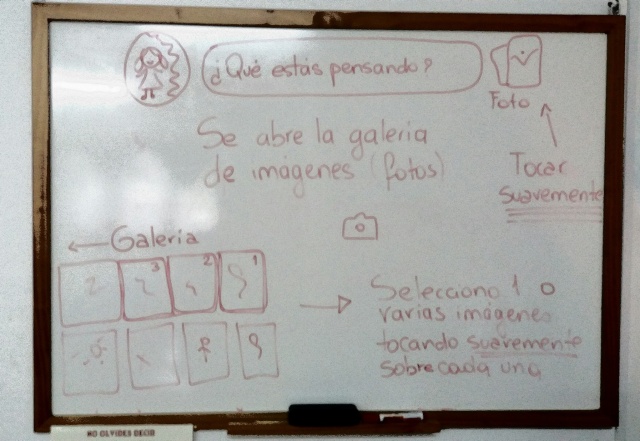 ¿Qué estás pensando?
Foto
Se abre la galeria
de imágenes (fotos)
Tocar
suavemente
← Galeria
3 2 1
Selecciono 1 o
varias imágenes
tocando suavemente
sobre cada una
NO OLVIDES DECIR